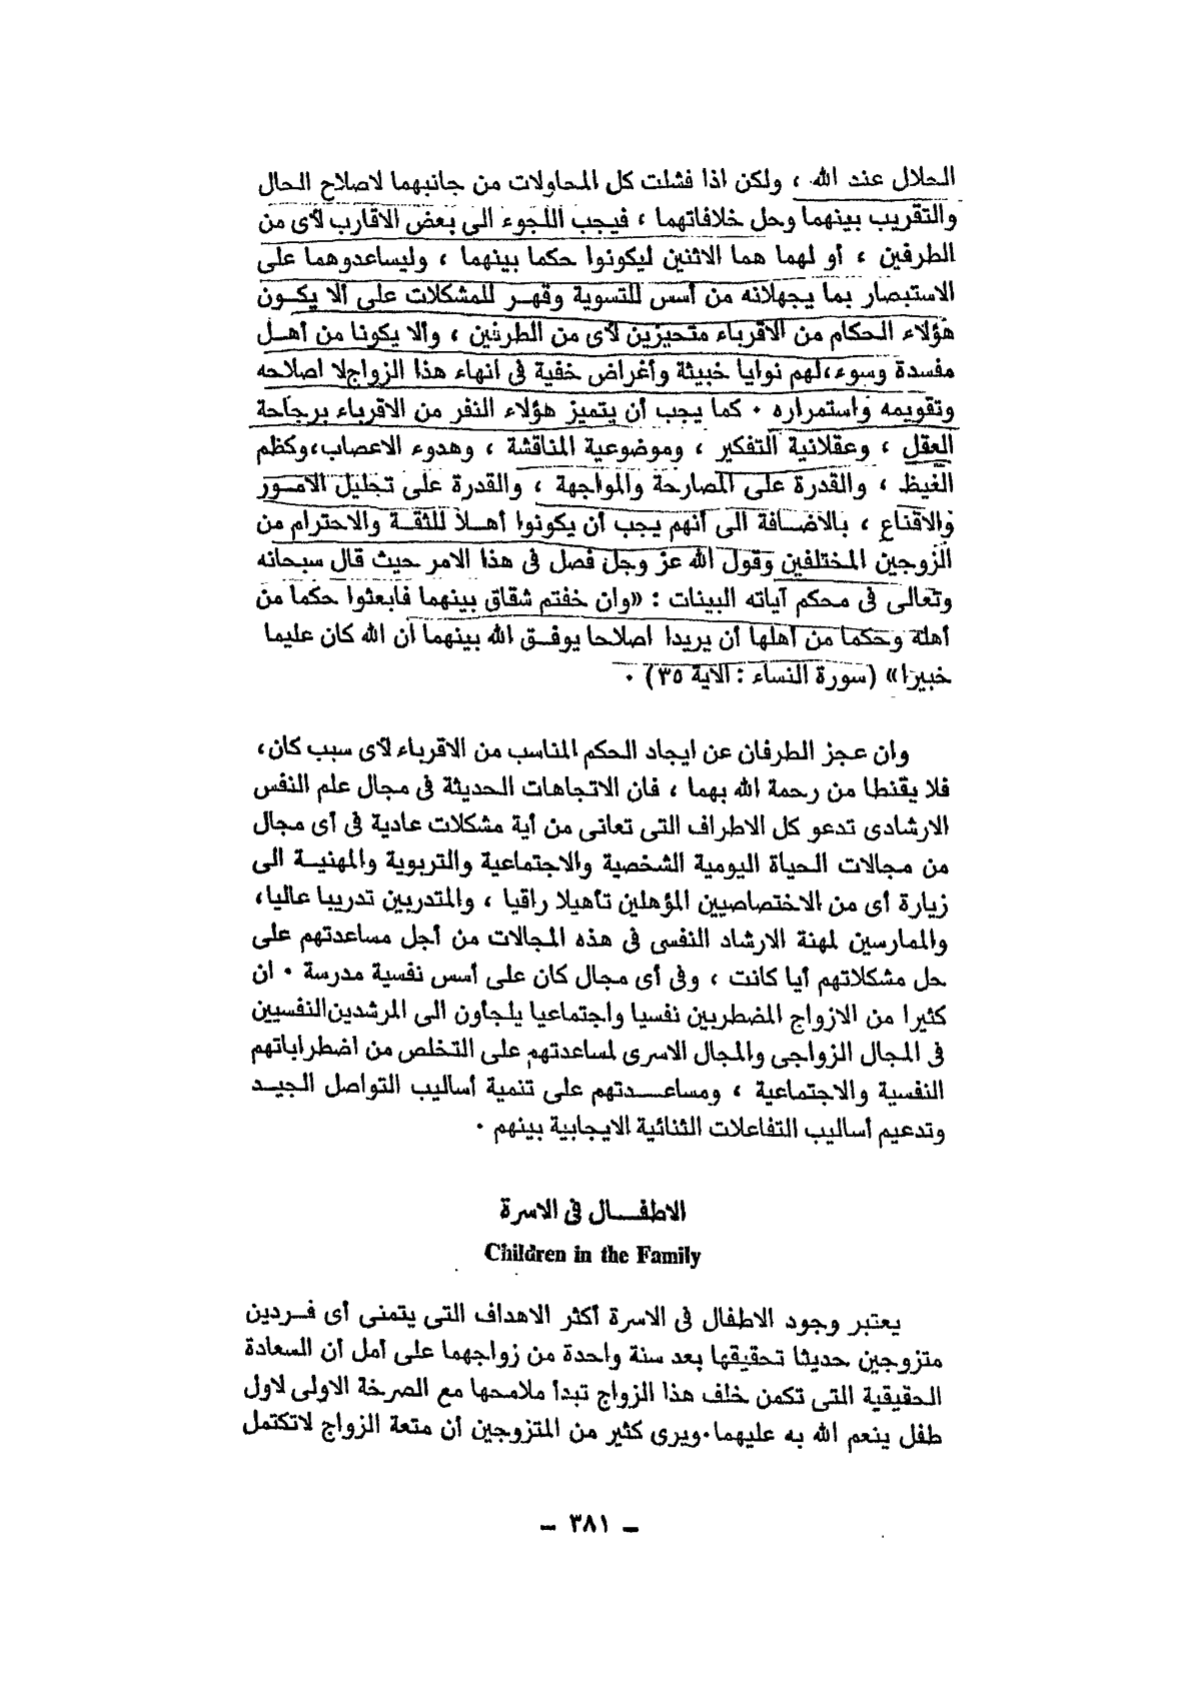 الحلال عند الله ، ولكن اذا فشلت كل المحاولات من جانبهما لاصلاح الحال
والتقريب بينهما وحل خلافاتهما ، فيجب اللجوء الى بعض الاقارب لأى من
الطرفين ، أو لهما هما الاثنين ليكونوا حكما بينهما ، وليساعدوهما على
الاستبصار بما يجهلانه من أسس للتسوية وقهـر للمشكلات على ألا يكـون
هؤلاء الحكام من الاقرباء متحيزين لأى من الطرفين ، وألا يكونا من أهـل
مفسدة وسوء،لهم نوايا خبيثة وأغراض خفية فى انهاء هذا الزواج لا اصلاحه
وتقويمه واستمراره ٠ كما يجب أن يتميز هؤلاء النفر من الاقرباء برجاحة
العقل ، وعقلانية التفكير ، وموضوعية المناقشة ، وهدوء الاعصاب،وكظم
الغيظ ، والقدرة على المصارحة والمواجهة ، والقدرة على تحليل الامـور
والاقناع ، بالاضـافة الى أنهم يجب أن يكونوا أهـلا للثقـة والاحترام من
الزوجين المختلفين وقول الله عز وجل فصل فى هذا الامر حيث قال سبحانه
وتعالى فى محكم آياته البينات : «وان خفتم شقاق بينهما فابعثوا حكما من
أهله وحكما من أهلها أن يريدا اصلاحا يوفـق الله بينهما أن الله كان عليما
خبيرا» (سورة النساء : الآية ٣٥) ٠
وان عجز الطرفان عن ايجاد الحكم المناسب من الاقرباء لأى سبب كان،
فلا يقنطا من رحمة الله بهما ، فان الاتجاهات الحديثة فى مجال علم النفس
الارشادى تدعو كل الاطراف التى تعانى من أية مشكلات عادية فى أى مجال
من مجالات الحياة اليومية الشخصية والاجتماعية والتربوية والمهنيـة الى
زيارة أى من الاختصاصيين المؤهلين تأهيلا راقيا ، والمتدربين تدريبا عاليا،
والممارسين لمهنة الارشاد النفسى فى هذه المجالات من أجل مساعدتهم على
حل مشكلاتهم أيا كانت ، وفى أى مجال كان على أسس نفسية مدرسة ٠ ان
كثيرا من الازواج المضطربين نفسيا واجتماعيا يلجأون الى المرشدين النفسيين
فى المجال الزواجى والمجال الاسرى لمساعدتهم على التخلص من اضطراباتهم
النفسية والاجتماعية ، ومساعـــدتهم على تنمية أساليب التواصل الجيـد
وتدعيم أساليب التفاعلات الثنائية الايجابية بينهم ٠
الاطفــال فى الاسرة
Children in the Family
يعتبر وجود الاطفال فى الاسرة أكثر الاهداف التى يتمنى أى فـردين
متزوجين حديثا تحقيقها بعد سنة واحدة من زواجهما على أمل أن السعادة
الحقيقية التى تكمن خلف هذا الزواج تبدأ ملامحها مع الصرخة الاولى لاول
طفل ينعم الله به عليهما٠ويرى كثير من المتزوجين أن متعة الزواج لاتكتمل
– ٣٨١ –